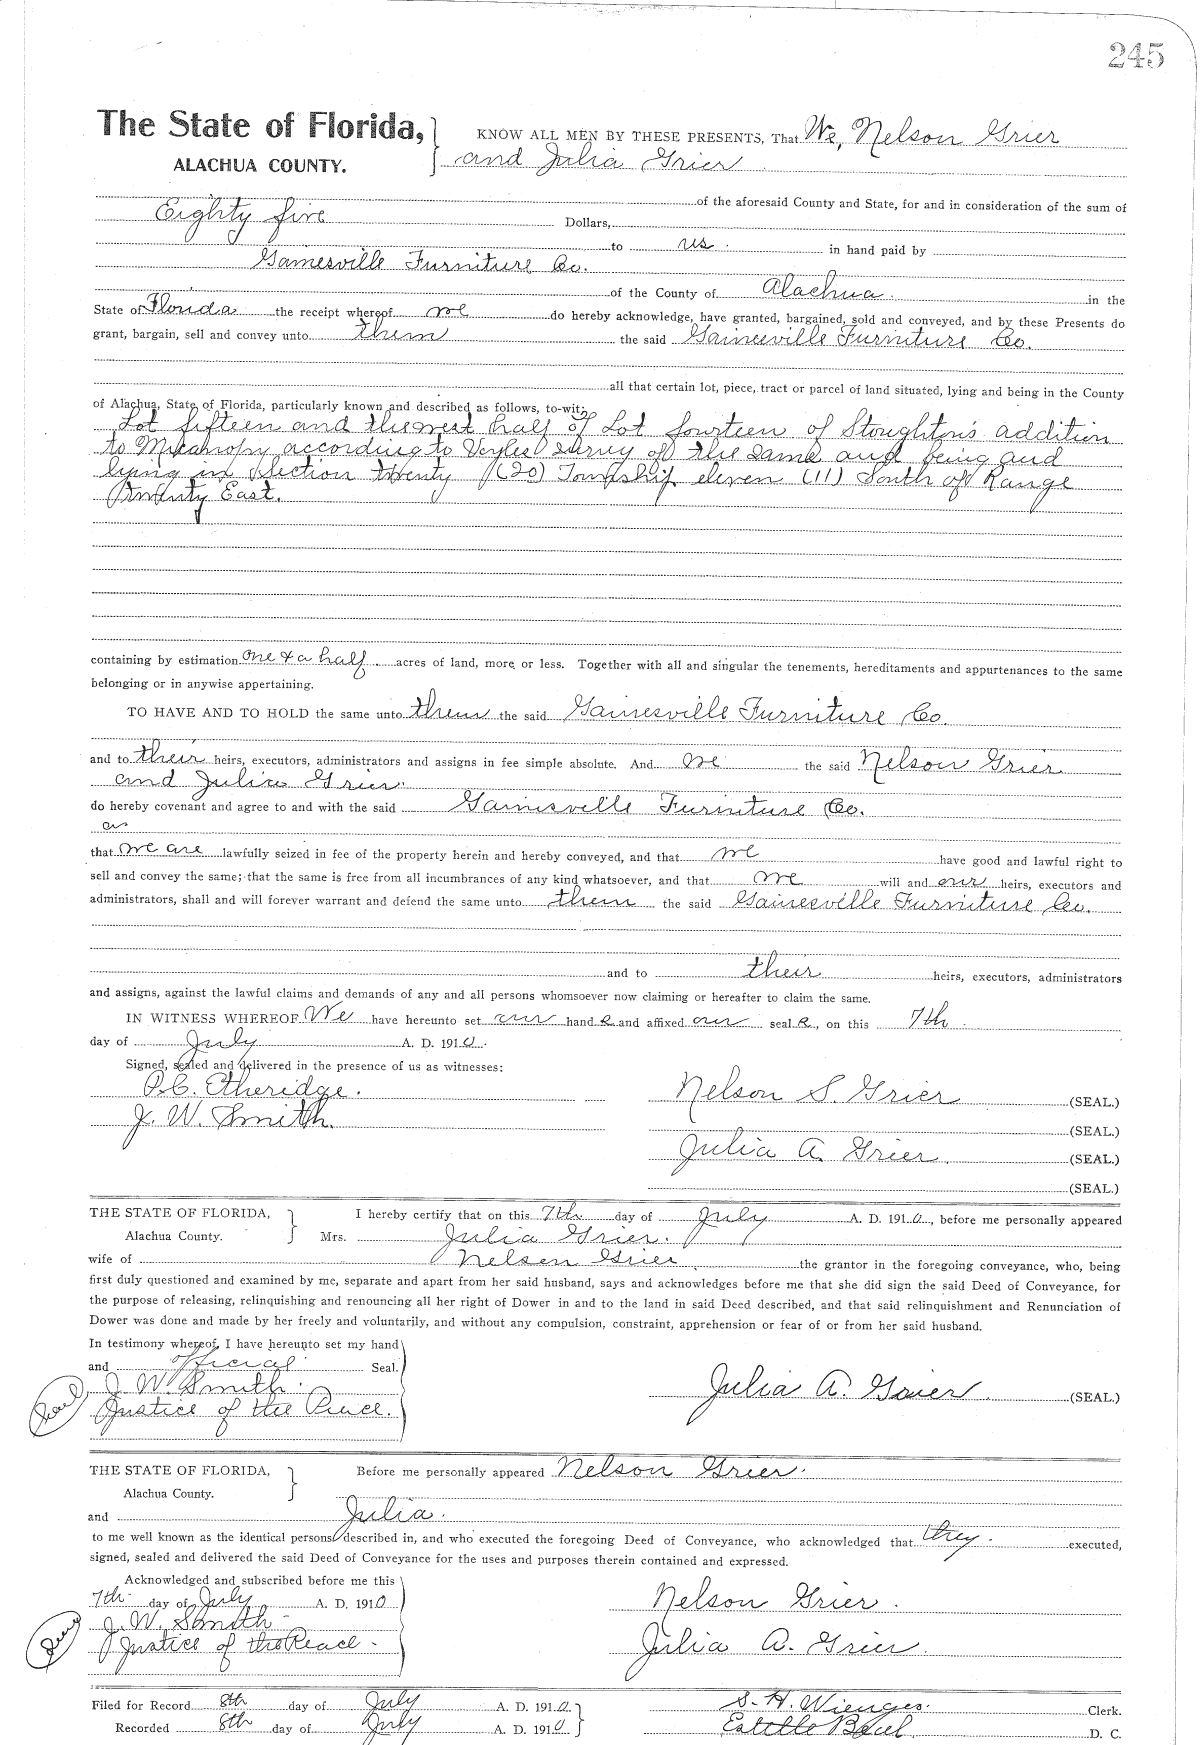 245
The State of Florida, KNOW ALL MEN BY THESE PRESENTS, That We, Nelson Grier
ALACHUA COUNTY. and Julia Grier
of the aforesaid County and State, for and in consideration of the sum of
Eighty five Dollars,
to us in hand paid by
Gainesville Furniture Co.
of the County of Alachua in the
State of Florida the receipt whereof we do hereby acknowledge, have granted, bargained, sold and conveyed, and by these Presents do
grant, bargain, sell and convey unto them the said Gainesville Furniture Co.
all that certain lot, piece, tract or parcel of land situated, lying and being in the County
of Alachua, State of Florida, particularly known and described as follows, to-wit:
Lot fifteen and the west half of Lot fourteen of Stoughton's addition
to Micanopy according to survey of the same and being and
lying in Section twenty (20) Township eleven (11) South of Range
twenty East.
containing by estimation one & a half acres of land, more or less. Together with all and singular the tenements, hereditaments and appurtenances to the same
belonging or in anywise appertaining.
TO HAVE AND TO HOLD the same unto them the said Gainesville Furniture Co.
and to their heirs, executors, administrators and assigns in fee simple absolute. And we the said Nelson Grier
and Julia Grier
do hereby covenant and agree to and with the said Gainesville Furniture Co.
as
that we are lawfully seized in fee of the property herein and hereby conveyed, and that we have good and lawful right to
sell and convey the same; that the same is free from all incumbrances of any kind whatsoever, and that we will and our heirs, executors and
administrators, shall and will forever warrant and defend the same unto them the said Gainesville Furniture Co.
and to their heirs, executors, administrators
and assigns, against the lawful claims and demands of any and all persons whomsoever now claiming or hereafter to claim the same.
IN WITNESS WHEREOF We have hereunto set our hand s and affixed our seal s, on this 7th
day of July A. D. 1910.
Signed, sealed and delivered in the presence of us as witnesses:
P.C. Etheridge. Nelson S. Grier (SEAL.)
J. W. Smith. (SEAL.)
Julia A. Grier (SEAL.)
(SEAL.)
THE STATE OF FLORIDA, I hereby certify that on this 7th day of July A. D. 1910, before me personally appeared
Alachua County. Mrs. Julia Grier.
wife of Nelson Grier the grantor in the foregoing conveyance, who, being
first duly questioned and examined by me, separate and apart from her said husband, says and acknowledges before me that she did sign the said Deed of Conveyance, for
the purpose of releasing, relinquishing and renouncing all her right of Dower in and to the land in said Deed described, and that said relinquishment and Renunciation of
Dower was done and made by her freely and voluntarily, and without any compulsion, constraint, apprehension or fear of or from her said husband.
In testimony whereof, I have hereunto set my hand
and official Seal.
J. W. Smith. Julia A. Grier (SEAL.)
Seal Justice of the Peace.
THE STATE OF FLORIDA, Before me personally appeared Nelson Grier.
Alachua County.
and Julia.
to me well known as the identical persons described in, and who executed the foregoing Deed of Conveyance, who acknowledged that they executed,
signed, sealed and delivered the said Deed of Conveyance for the uses and purposes therein contained and expressed.
Acknowledged and subscribed before me this
7th day of July A. D. 1910 Nelson Grier.
J. W. Smith
Seal Justice of the Peace. Julia A. Grier.
Filed for Record 8th day of July A. D. 1910 S. H. Wienges. Clerk.
Recorded 8th day of July A. D. 1910 D. C.